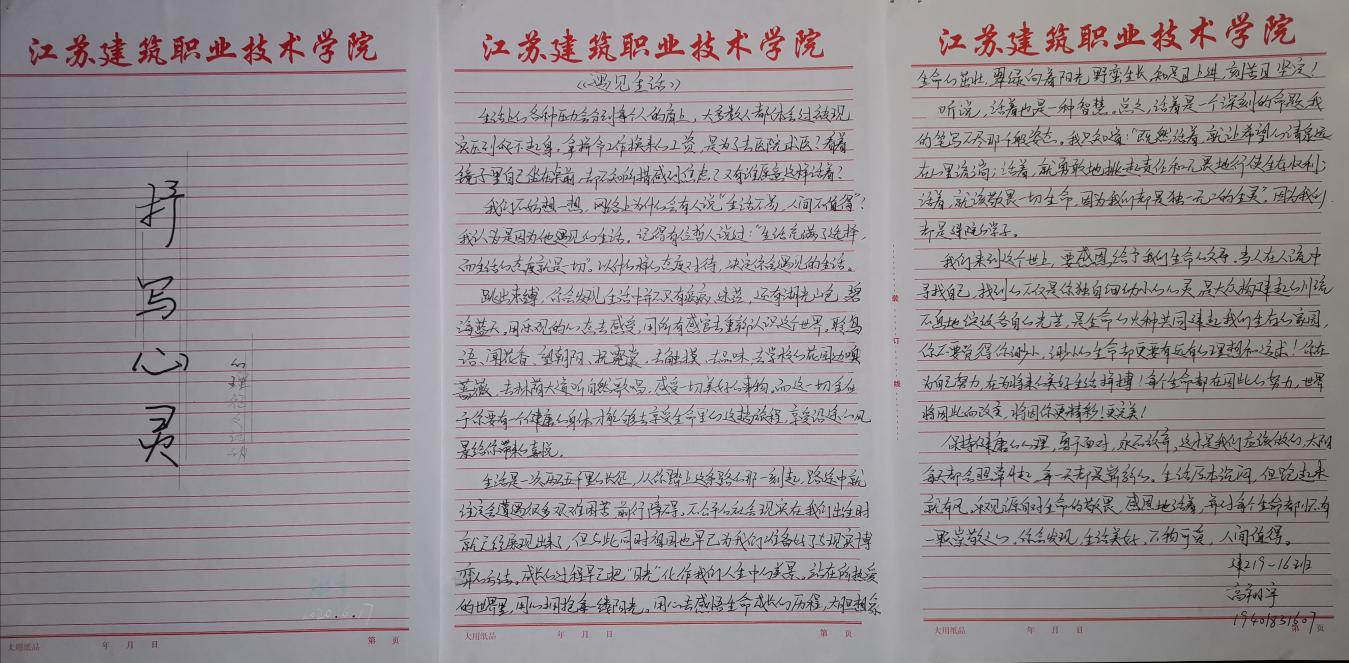 江苏建筑职业技术学院
抒写心灵
心理征文活动
2020.6.17
大明纸品 年 月 日 第 页
江苏建筑职业技术学院
《遇见生活》
生活上的各种压力会分到每个人的肩上，大多数人都体会过被现
实压到喘不起身，拿拼命工作换来的工资，是为了去医院求医？看着
镜子里自己坐在桌前，却不知所措感到焦虑？又有谁愿意这样活着？
我们不妨想一想，网络上为什么会有人说“生活不易，人间不值得”？
我认为是因为他遇见的生活。记得有位哲人说过：“生活充满了选择，
而生活的态度就是一切。”以什么样的态度对待，决定你会遇见的生活。
跳出束缚，你会发现生活中并不只有疲惫、迷茫，还有湖光山色，碧
海蓝天。用乐观的心态去感受，用所有感官去重新认识这个世界，聆鸟
语、闻花香、望朝阳、抚露裳，去触摸，去品味，去学校的花园边嗅
蔷薇，去林荫大道听自然歌唱，感受一切美好的事物。而这一切全在
于你要有一个健康的身体才能够去享受生命里的这趟旅程，享受沿途的风
景给你带来的喜悦。
生活是一次两万五千里的长征，从你踏上这条路的那一刻起，路途中就
注定会遭遇很多艰难困苦，前行障碍。不公平的社会现实在我们出生时
就已经展现出来了，但与此同时祖国也早已为我们准备好了与现实博
弈的方法。成长的过程早已把“目光”化作我们人生中的美景。站在所热爱
的世界里，用心拥抱每一缕阳光。用心去感悟生命成长的历程，大胆想象
大明纸品 年 月 日 第 页
江苏建筑职业技术学院
生命的茁壮，翠绿向着阳光，野蛮生长，知足且上进，刻苦且坚定！
听说，活着也是一种智慧。总之，活着是一个深刻的命题，我
的笔写不尽那千般姿态。我只知道：“既然活着，就让希望的清泉永远
在心里流淌；活着，就勇敢地挑起责任和无畏地行使生存权利；
活着，就该敬畏一切生命，因为我们都是独一无二的生灵”。因为我们
都是建院的学子。
我们来到这个世上，要感恩给予我们生命的父母。当人在人流中
寻找自己，找到的不仅是你独自细幼小的心灵，是大众构建起的川流
不息地绽放各自的光芒，是生命的火种共同建起我们生存的家园，
你不要觉得你渺小，渺小的生命却更要有远有的理想和追求！你在
为自己努力，在为将来的美好生活拼搏！每个生命都在因此的努力，世界
将因此而改变，将因你更精彩！更完美！
保持健康的心理，勇于面对，永不放弃，这才是我们应该做的，太阳
每天都会照常升起，每一天都是崭新的。生活原本沉闷，但跑起来
就有风，乐观源自对生命的敬畏，感恩地活着，并对每个生命都怀有
一颗崇敬之心，你会发现，生活美好，不枸可爱，人间值得。
建219-16班
高翔宇
1940831607
装
订
线
大明纸品 年 月 日 第 页